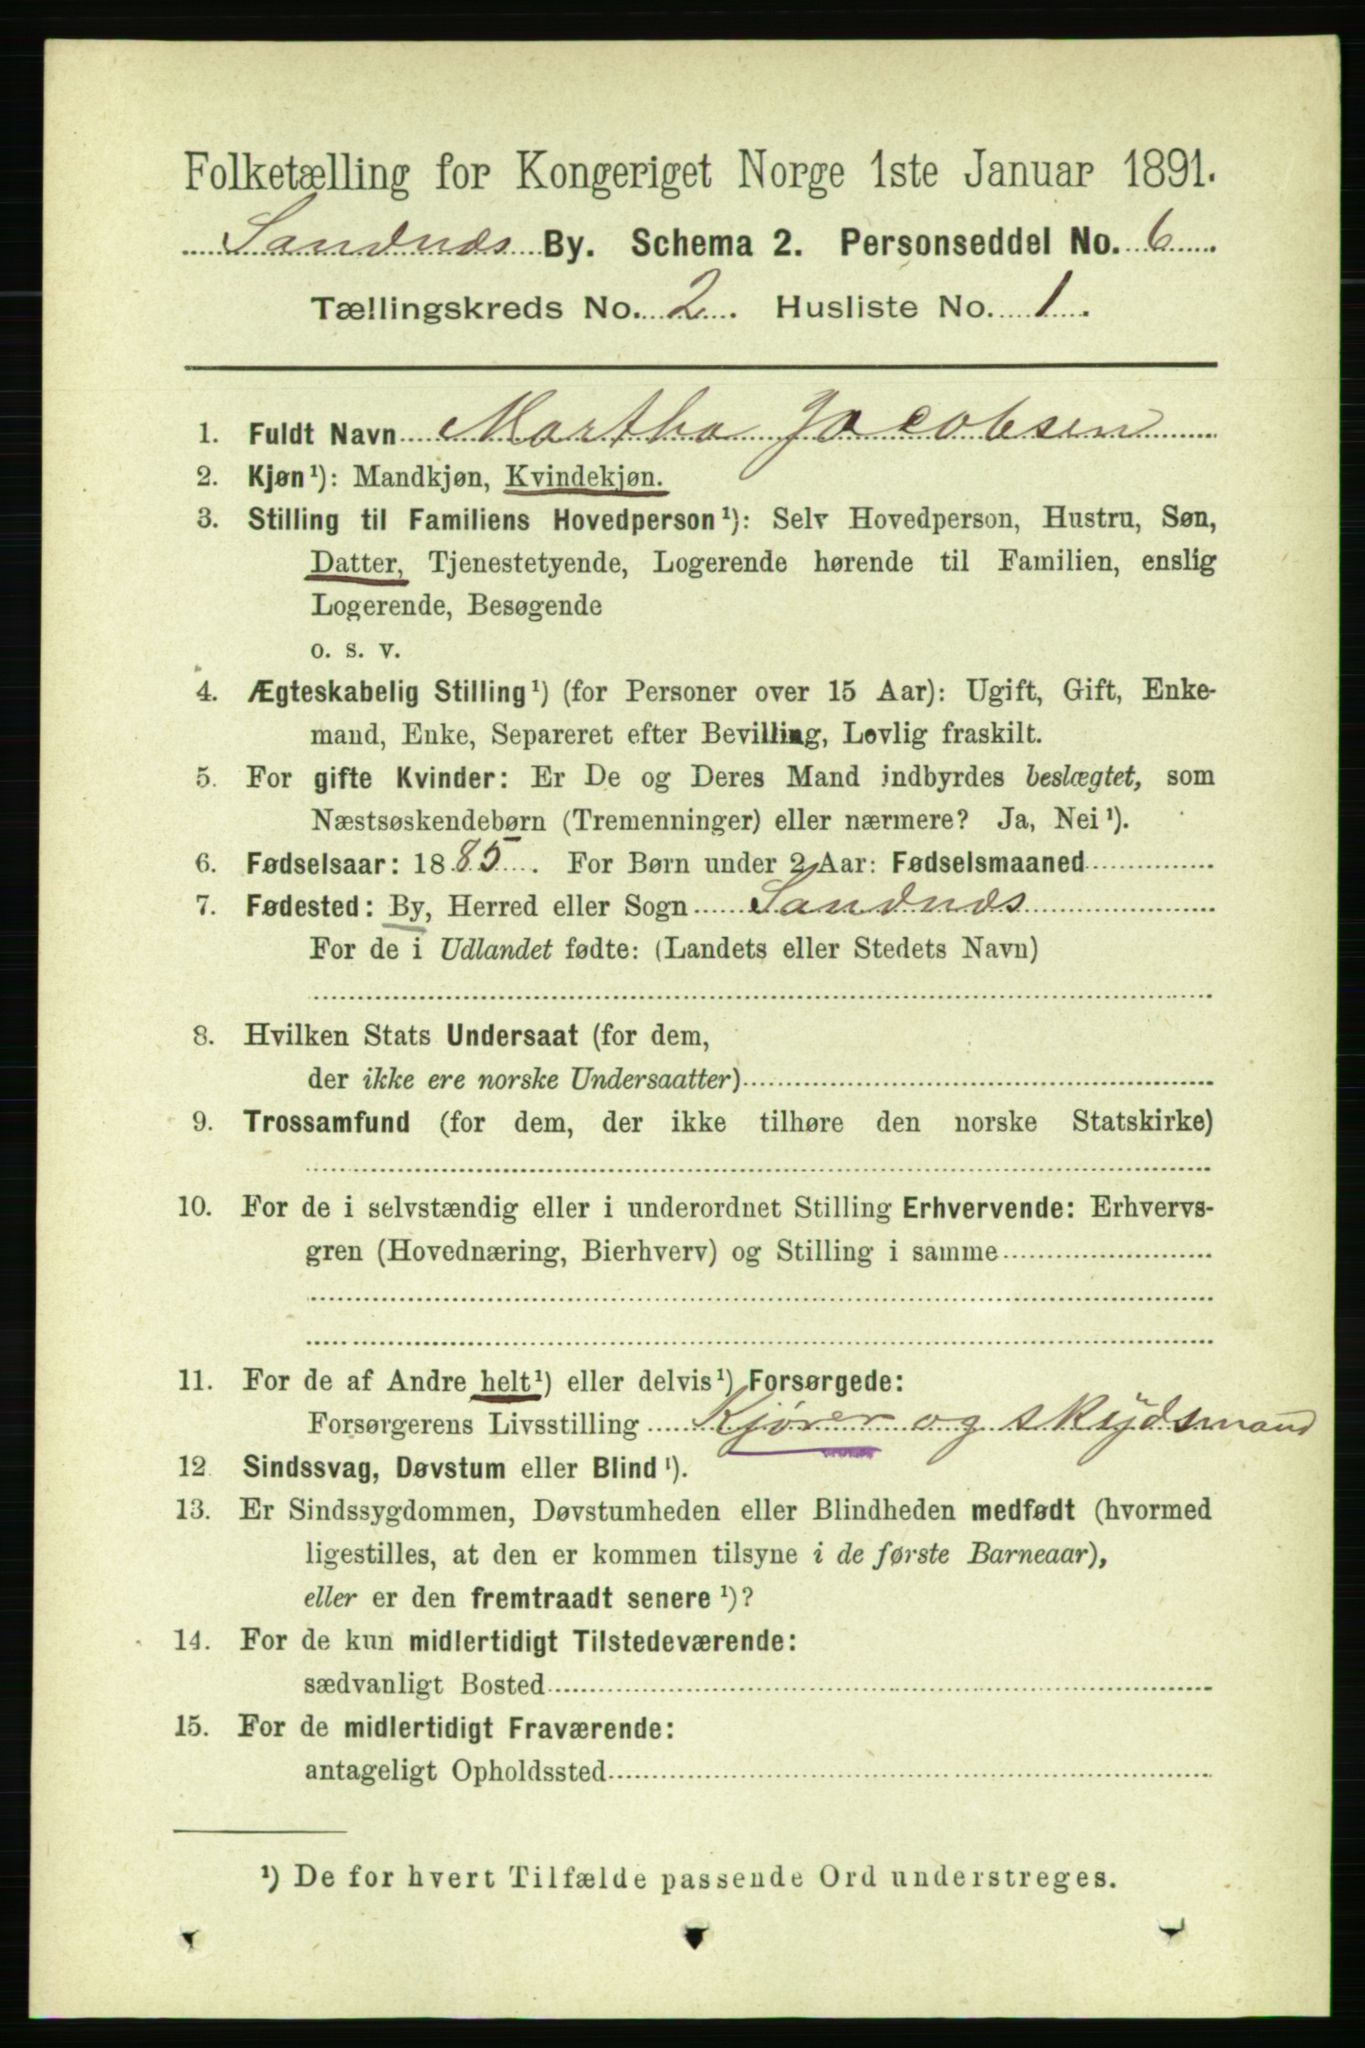 Folketælling for Kongeriget Norge 1ste Januar 1891.
Sandnæs By. Schema 2. Personseddel No. 6
Tællingskreds No. 2. Husliste No. 1.
1. Fuldt Navn Martha Jacobsen
2. Kjøn¹): Mandkjøn, Kvindekjøn.
3. Stilling til Familiens Hovedperson¹): Selv Hovedperson, Hustru, Søn,
Datter, Tjenestetyende, Logerende hørende til Familien, enslig
Logerende, Besøgende
o. s. v.
4. Ægteskabelig Stilling¹) (for Personer over 15 Aar): Ugift, Gift, Enke-
mand, Enke, Separeret efter Bevilling, Lovlig fraskilt.
5. For gifte Kvinder: Er De og Deres Mand indbyrdes beslægtet, som
Næstsøskendebørn (Tremenninger) eller nærmere? Ja, Nei¹).
6. Fødselsaar: 1885. For Børn under 2 Aar: Fødselsmaaned
7. Fødested: By, Herred eller Sogn Sandnæs
For de i Udlandet fødte: (Landets eller Stedets Navn)
8. Hvilken Stats Undersaat (for dem,
der ikke ere norske Undersaatter)
9. Trossamfund (for dem, der ikke tilhøre den norske Statskirke)
10. For de i selvstændig eller i underordnet Stilling Erhvervende: Erhvervs-
gren (Hovednæring, Bierhverv) og Stilling i samme
11. For de af Andre helt¹) eller delvis¹) Forsørgede:
Forsørgerens Livsstilling Kjører og skydsmand
12. Sindssvag, Døvstum eller Blind¹).
13. Er Sindssygdommen, Døvstumheden eller Blindheden medfødt (hvormed
ligestilles, at den er kommen tilsyne i de første Barneaar),
eller er den fremtraadt senere¹)?
14. For de kun midlertidigt Tilstedeværende:
sædvanligt Bosted
15. For de midlertidigt Fraværende:
antageligt Opholdssted
¹) De for hvert Tilfælde passende Ord understreges.